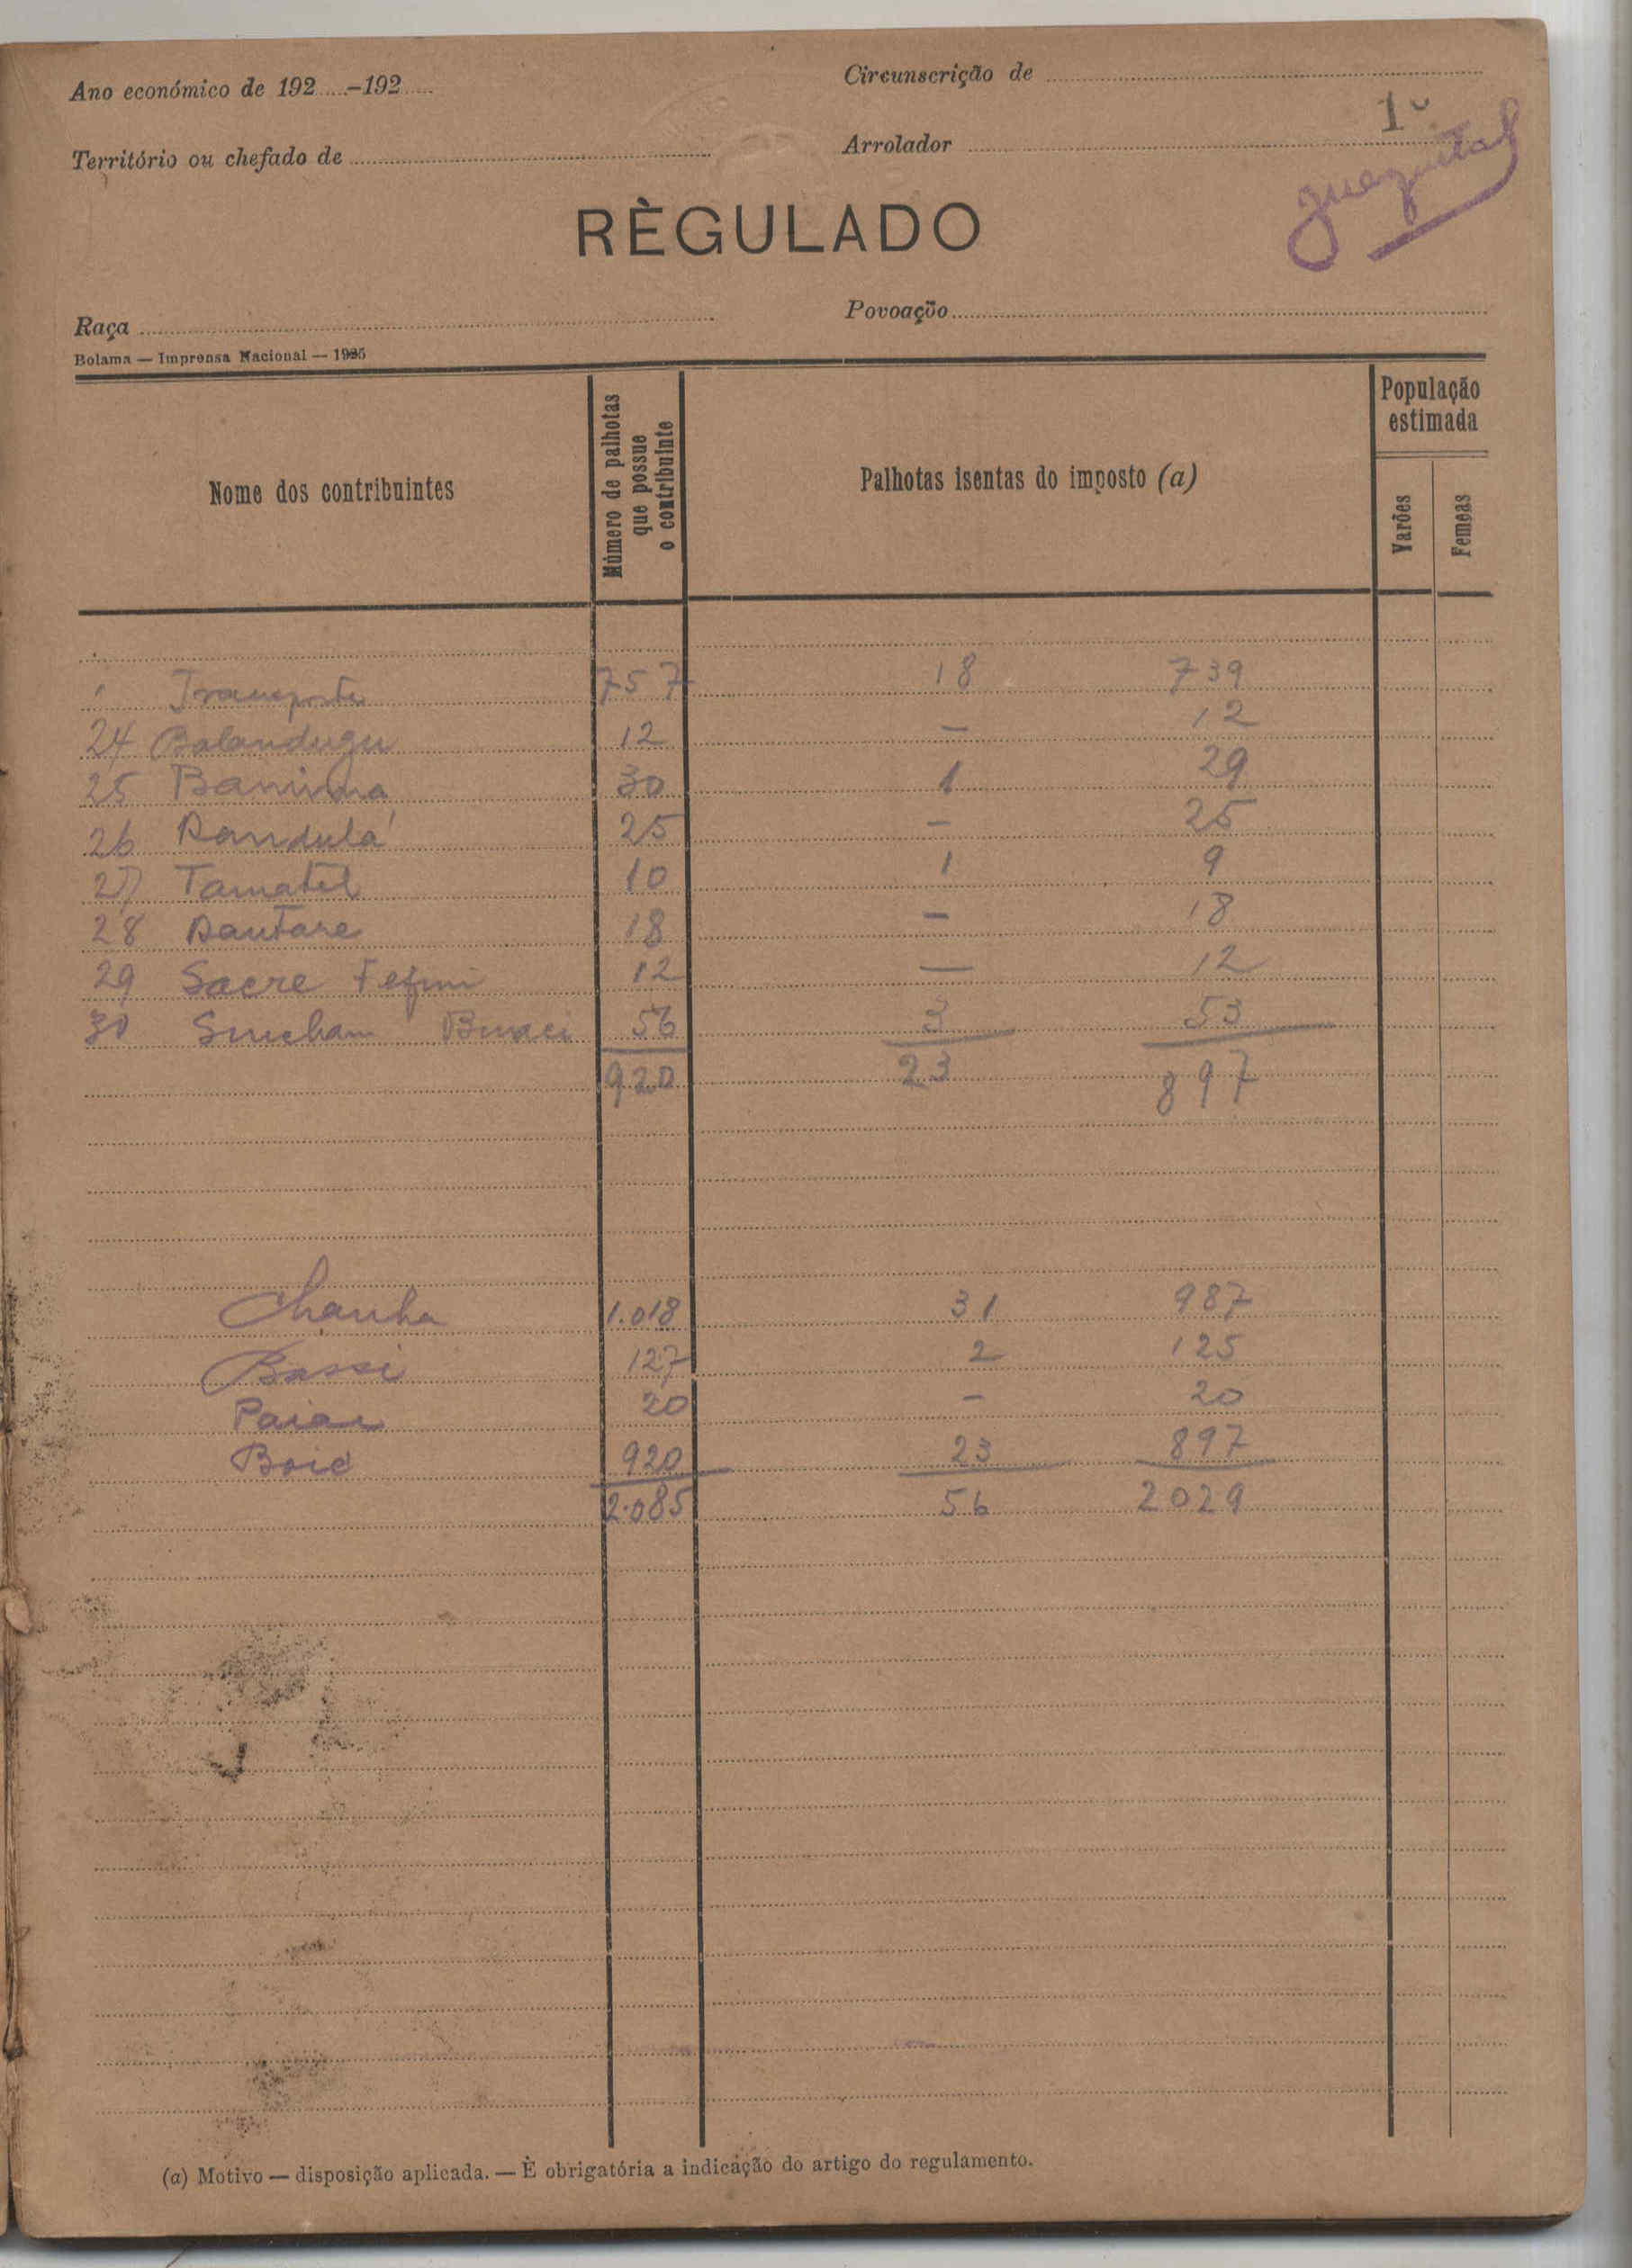 Ano económico de 192.....-192.....
Circunscrição de
1º
Território ou chefado de
Arrolador
RÈGULADO
Raça
Povoação
Bolama — Imprensa Nacional — 1925
Nome dos contribuintes
Número de palhotas que possue o contribuinte
Palhotas isentas do imposto (a)
População estimada
Varões
Femeas
Transporte 757 18 739
24 Balandugu 12 — 12
25 Banima 30 1 29
26 Dandulá 25 — 25
27 Tamatel 10 1 9
28 Dautare 18 — 18
29 Sacre 12 — 12
30 Sincham 56 3 53
920 23 897
Chanha 1.018 31 987
Bassi 127 2 125
Paiai 20 — 20
Boié 920 23 897
2.085 56 2029
(a) Motivo — disposição aplicada. — È obrigatória a indicação do artigo do regulamento.